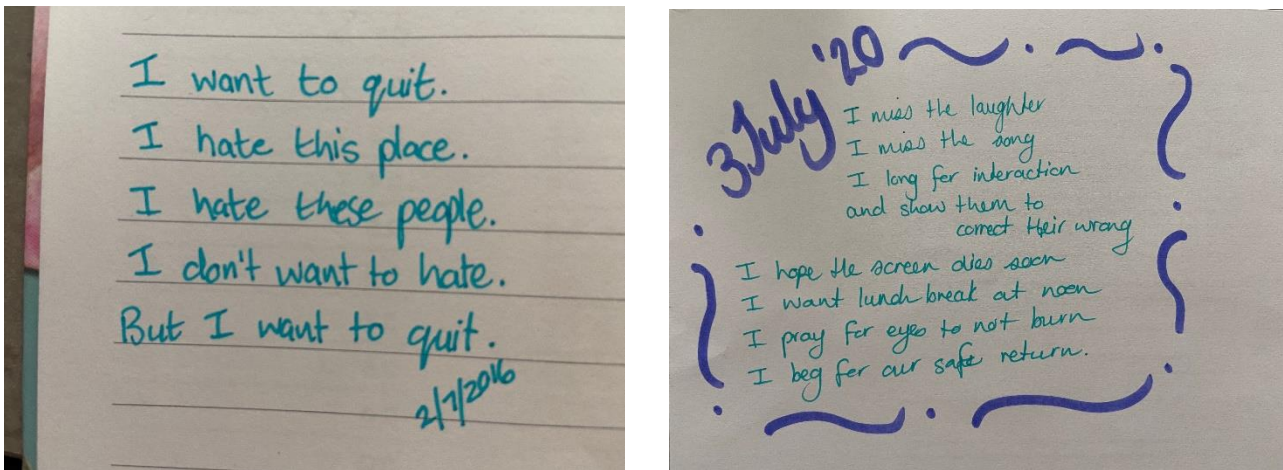 I want to quit.
I hate this place.
I hate these people.
I don't want to hate.
But I want to quit.
2/7/2016
3 July '20
I miss the laughter
I miss the song
I long for interaction
and show them to
correct their wrong
I hope the screen dies soon
I want lunch break at noon
I pray for eyes to not burn
I beg for our safe return.